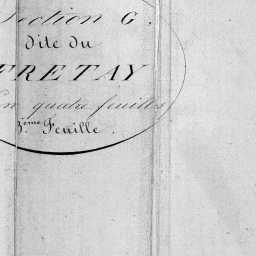 Section G.
dite du
FRETAY
En quatre feuilles
3ème Feuille.